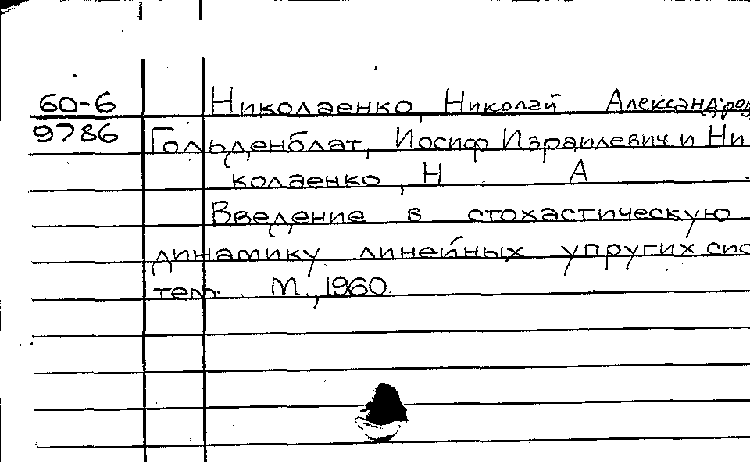 60-6 Николаенко, Николай Александров
9786 Гольденблат, Иосиф Израилевич и Ни
колаенко, Н. А.
Введение в стохастическую
динамику линейных упругих сис
тем. М., 1960.